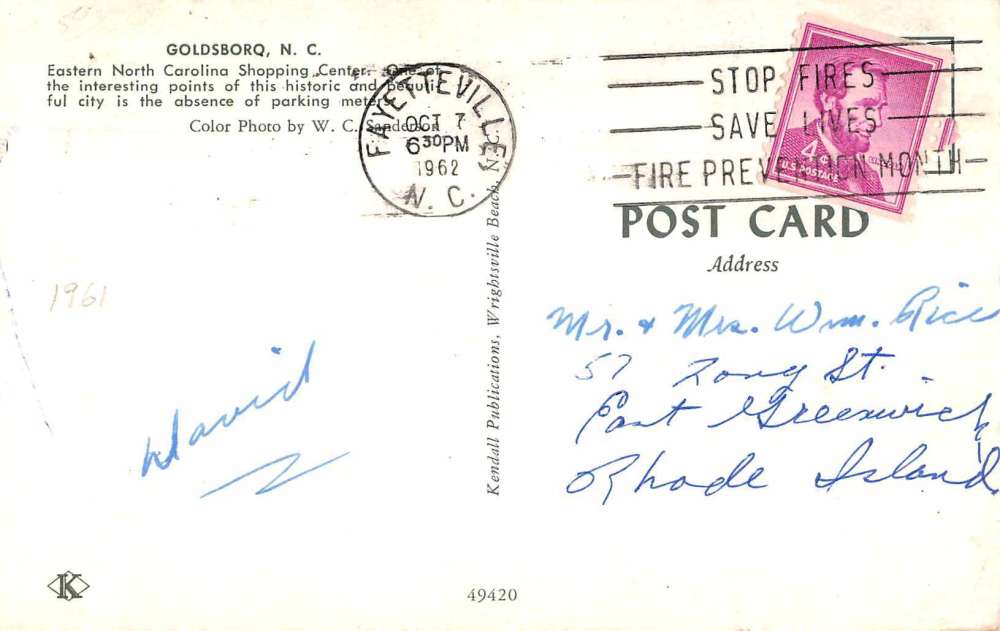 GOLDSBORO, N. C.
Eastern North Carolina Shopping Center. One of
the interesting points of this historic and beauti-
ful city is the absence of parking meters.
Color Photo by W. C. Sanderson
FAYETTEVILLE
OCT 7
6 30 PM
1962
N. C.
STOP FIRES
SAVE LIVES
FIRE PREVENTION MONTH
4¢
U.S. POSTAGE
POST CARD
Address
1961
David
Kendall Publications, Wrightsville Beach, N. C.
Mr. & Mrs. Wm. Rice
57 Long St.
East Greenwich
Rhode Island
K
49420